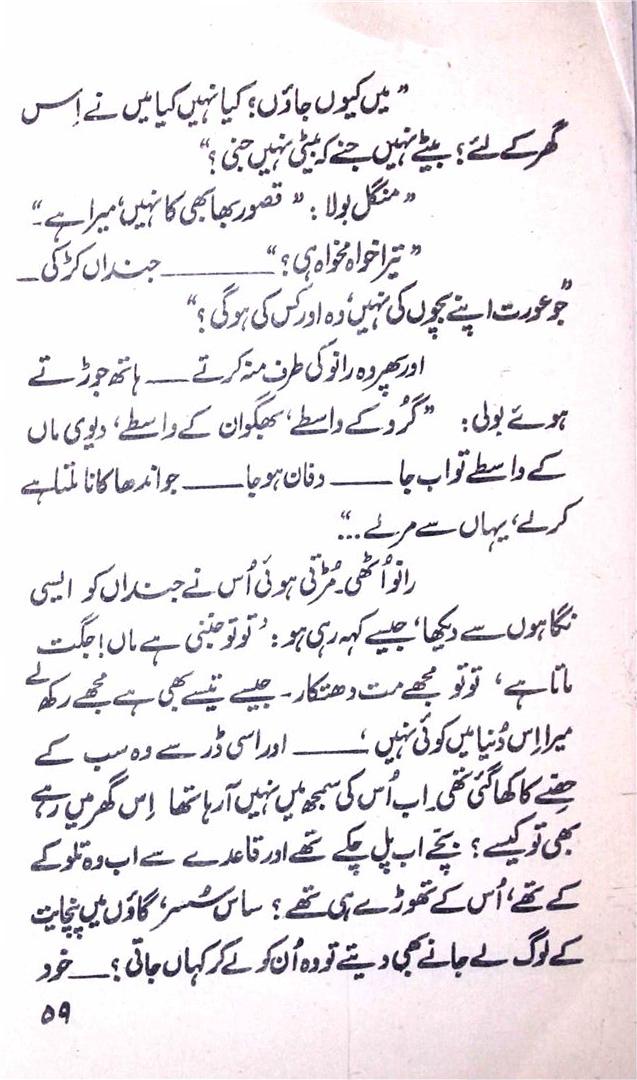 ”میں کیوں جاؤں؟ کیا نہیں کیا میں نے اِس
گھر کے لئے؟ بیٹے نہیں جنے کہ بیٹی نہیں جنی؟“
”منگل بولا: ”قصور بھابھی کا نہیں، میرا ہے۔“
”تیرا خواہ مخواہ ہی؟“ ــــــــ جنداں کڑکی ــ
”جو عورت اپنے بچوں کی نہیں، وہ اور کس کی ہو گی؟“
اور پھر وہ رانو کی طرف منہ کرتے ــــ ہاتھ جوڑتے
ہوئے بولی: ”گرُو کے واسطے، بھگوان کے واسطے، دیوی ماں
کے واسطے تو اب جا ــــــ دفان ہو جا ــــــ جو اندھا کانا ملتا ہے
کر لے، یہاں سے مر لے...“
رانو اُٹھی۔ مُڑتی ہوئی اُس نے جنداں کو ایسی
نگاہوں سے دیکھا، جیسے کہہ رہی ہو: ’تو تو جننی ہے ماں! جگت
ماتا ہے، تو تو مجھے مت دھتکار۔ جیسے تیسے بھی ہے مجھے رکھ لے
میرا اِس دُنیا میں کوئی نہیں‘ ــــــ اور اسی ڈر سے وہ سب کے
حِصّے کا کھا گئی تھی۔ اب اُس کی سمجھ میں نہیں آ رہا تھا اِس گھر میں رہے
بھی تو کیسے؟ بچّے اب پل چکے تھے اور قاعدے سے اب وہ تلوکے
کے تھے، اُس کے تھوڑے ہی تھے؟ ساس سُسر، گاؤں میں پنچایت
کے لوگ لے جانے بھی دیتے تو وہ اُن کو لے کر کہاں جاتی؟ ــــ خود
۵۹